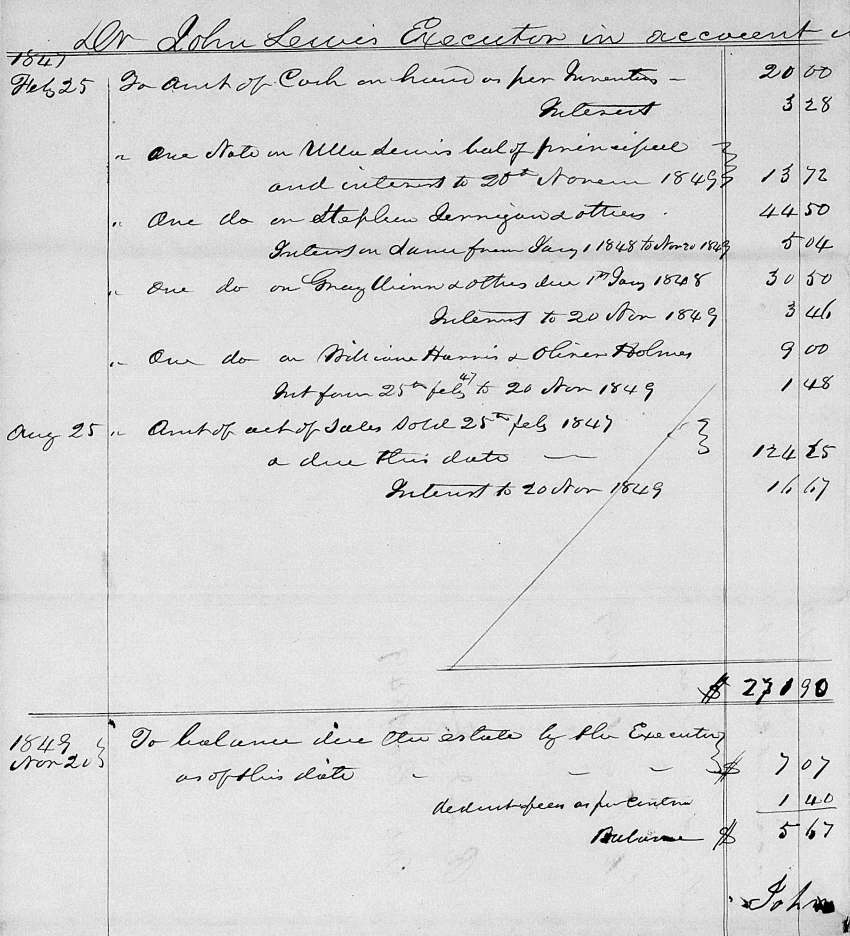 Dr John Lewis Executor in account
1847
Feb 25 To Amt of Cash on hand as per Inventory - 20 00
Interest 3 28
" One Note on Ulla Lewis bal of principal
and interest to 20th Novem 1849 13 72
" One do on Stephen Jernigan & others . 44 50
Interest on same from Jany 1 1848 to Nov 20 1849 5 04
" One do on Gray & others due 1st Jany 1848 30 50
Interest to 20 Nov 1849 3 46
" One do on William Harris & Oliver Holmes 9 00
Int from 25th feby 47 to 20 Nov 1849 1 48
Aug 25 " Amt of act of Sales Sold 25th feby 1847
& due this date — 124 25
Interest to 20 Nov 1849 16 67
$ 271 90
1849
Nov 20 To balance due the estate by the Executor
as of this date - - - $ 7 07
deduct fees as per 1 40
Balance $ 5 67
John